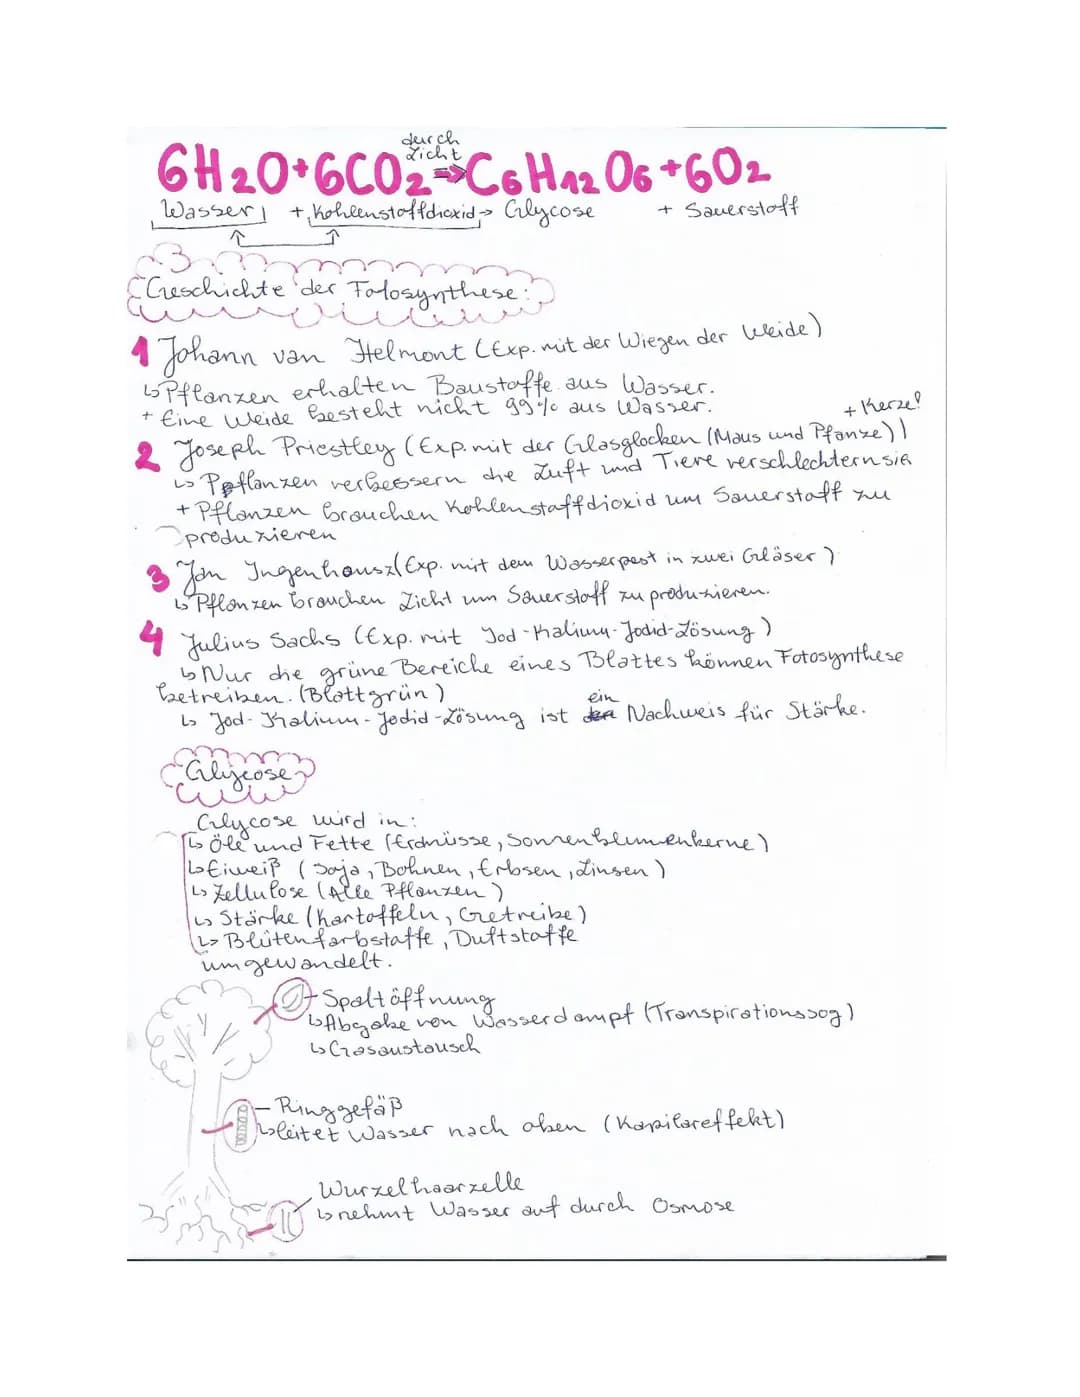 durch
Licht
6H2O+6CO2⇒C6H12O6+6O2
Wasser + Kohlenstoffdioxid → Glycose + Sauerstoff
Geschichte der Fotosynthese:
1 Johann van Helmont (Exp. mit der Wiegen der Weide)
↳ Pflanzen erhalten Baustoffe aus Wasser.
+ Eine Weide besteht nicht 99% aus Wasser.
+ Kerze!
2 Joseph Priestley (Exp. mit der Glasglocken (Maus und Pfanze))
↳ Pflanzen verbessern die Luft und Tiere verschlechtern sie
+ Pflanzen brauchen Kohlenstaffdioxid um Sauerstoff zu
produzieren
3 Jan Ingenhousz (Exp. mit dem Wasserpest in zwei Gläser)
↳ Pflanzen brauchen Licht um Sauerstoff zu produzieren.
4 Julius Sachs (Exp. mit Jod-Kalium-Jodid-Lösung)
↳ Nur die grüne Bereiche eines Blattes können Fotosynthese
betreiben. (Blattgrün)
↳ Jod-Kalium-Jodid-Lösung ist ein Nachweis für Stärke.
Glycose
Glycose wird in:
↳ Öle und Fette (Erdnüsse, Sonnenblumenkerne)
↳ Eiweiß (Soja, Bohnen, Erbsen, Linsen)
↳ Zellulose (Alle Pflanzen)
↳ Stärke (Kartoffeln, Getreibe)
↳ Blütenfarbstaffe, Duftstaffe
umgewandelt.
Spaltöffnung
↳ Abgabe von Wasserdampf (Transpirationssog)
↳ Gasaustausch
Ringgefäß
↳ leitet Wasser nach oben (Kapilareffekt)
Wurzelhaarzelle
↳ nehmt Wasser auf durch Osmose